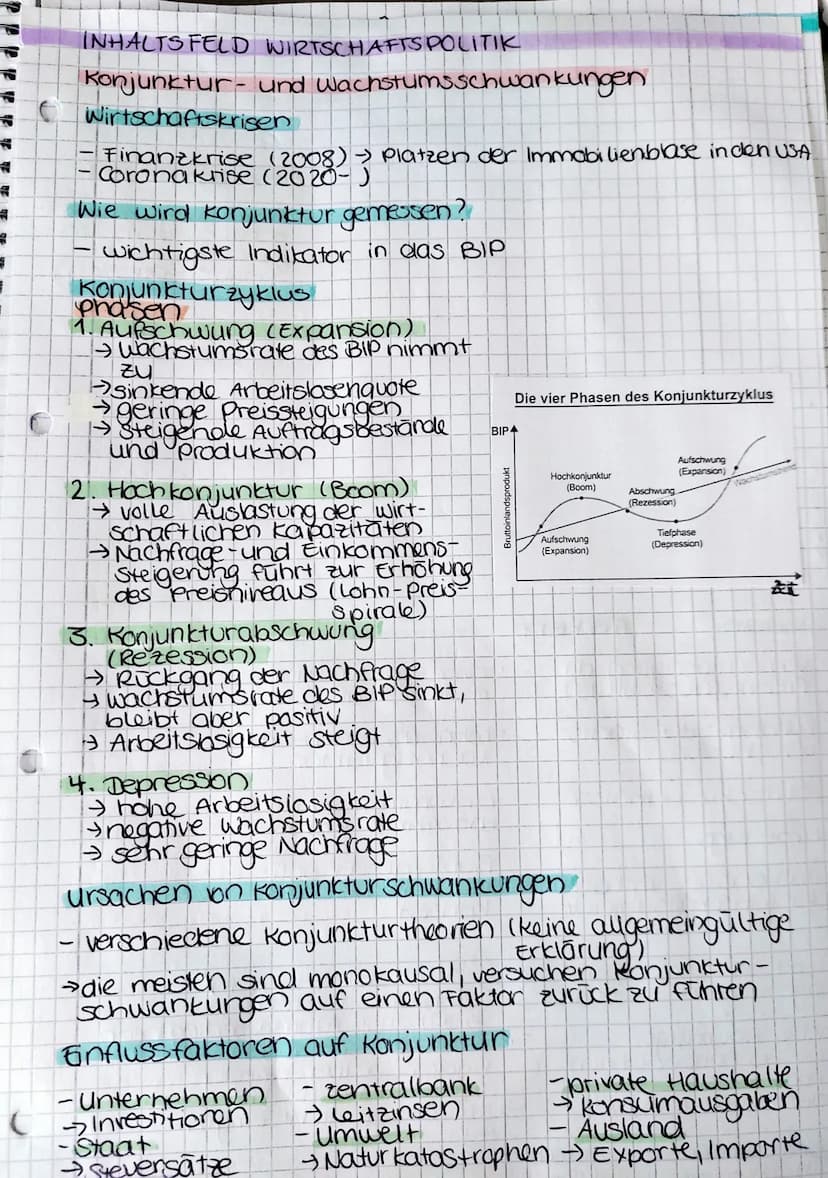 INHALTSFELD WIRTSCHAFTSPOLITIK
Konjunktur- und Wachstumsschwankungen
Wirtschaftskrisen
- Finanzkrise (2008) → Platzen der Immobilienblase in den USA
- Coronakrise (2020- )
Wie wird Konjunktur gemessen?
- wichtigste Indikator in das BIP
Konjunkturzyklus
Phasen
1. Aufschwung (Expansion)
→ Wachstumsrate des BIP nimmt
zu
→ sinkende Arbeitslosenquote
→ geringe Preissteigungen
→ Steigende Auftragsbestände
und Produktion
2. Hochkonjunktur (Boom)
→ volle Auslastung der wirt-
schaftlichen Kapazitäten
→ Nachfrage- und Einkommens-
steigerung führt zur Erhöhung
des Preisniveaus (Lohn-Preis-
Spirale)
Die vier Phasen des Konjunkturzyklus
BIP
Bruttoinlandsprodukt
Aufschwung
(Expansion)
Hochkonjunktur
(Boom)
Abschwung
(Rezession)
Tiefphase
(Depression)
Aufschwung
(Expansion)
Wachstumstrend
Zeit
3. Konjunkturabschwung
(Rezession)
→ Rückgang der Nachfrage
→ Wachstumsrate des BIP sinkt,
bleibt aber positiv
→ Arbeitslosigkeit steigt
4. Depression
→ hohe Arbeitslosigkeit
→ negative Wachstumsrate
→ sehr geringe Nachfrage
Ursachen von Konjunkturschwankungen
- verschiedene Konjunkturtheorien (keine allgemeingültige
Erklärung)
→ die meisten sind monokausal, versuchen Konjunktur-
schwankungen auf einen Faktor zurück zu führen
Einflussfaktoren auf Konjunktur
- Unternehmen
→ Investitionen
- Staat
→ Steuersätze
- Zentralbank
→ Leitzinsen
- Umwelt
→ Naturkatastrophen
- private Haushalte
→ Konsumausgaben
- Ausland
→ Exporte, Importe